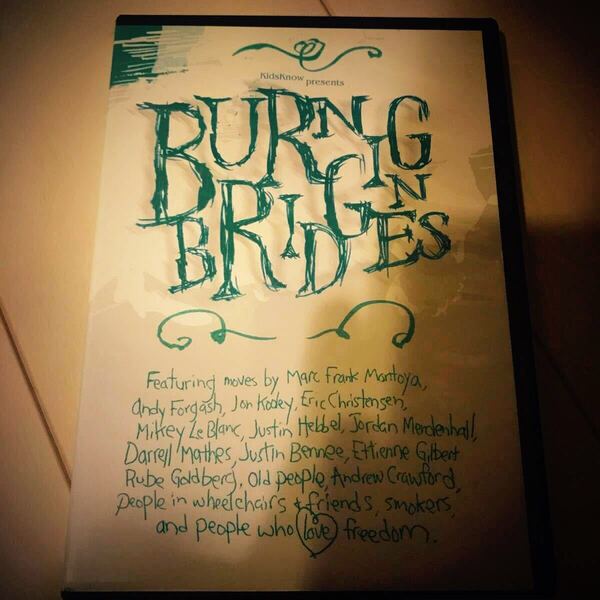 KidsKnow presents
BURNING
BRIDGES
Featuring moves by Marc Frank Montoya,
Andy Forgash, Jon Kooley, Eric Christensen,
Mikey LeBlanc, Justin Hebbel, Jordan Mendenhall,
Darrell Mathes, Justin Bennee, Ettienne Gilbert
Rube Goldberg, old people, Andrew Crawford,
people in wheelchairs & friends, smokers,
and people who love freedom.